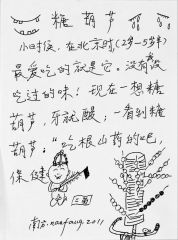 糖葫芦
小时候，在北京时（2岁-5岁半）
最爱吃的就是它。没有没
吃过的味！现在一想糖
葫芦，牙就酸；一看到糖
葫芦：“吃根山药的吧，
保健
南方.nanfang 2011